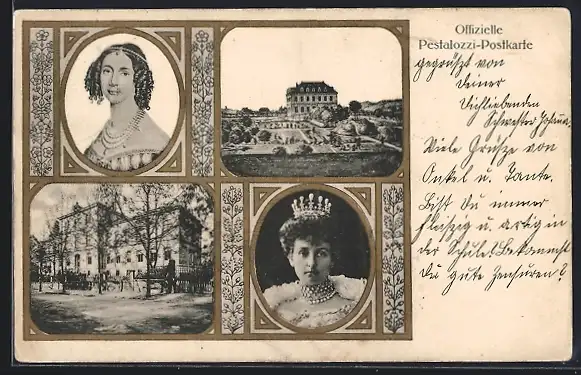 Offizielle
Pestalozzi-Postkarte
gegrüßt von
deiner
dichliebenden
Schwester Johanna.
Viele Grüße von
Onkel u. Tante.
Bist du immer
fleißig u. artig in
der Schule? Bekommst
du gute Zensuren?